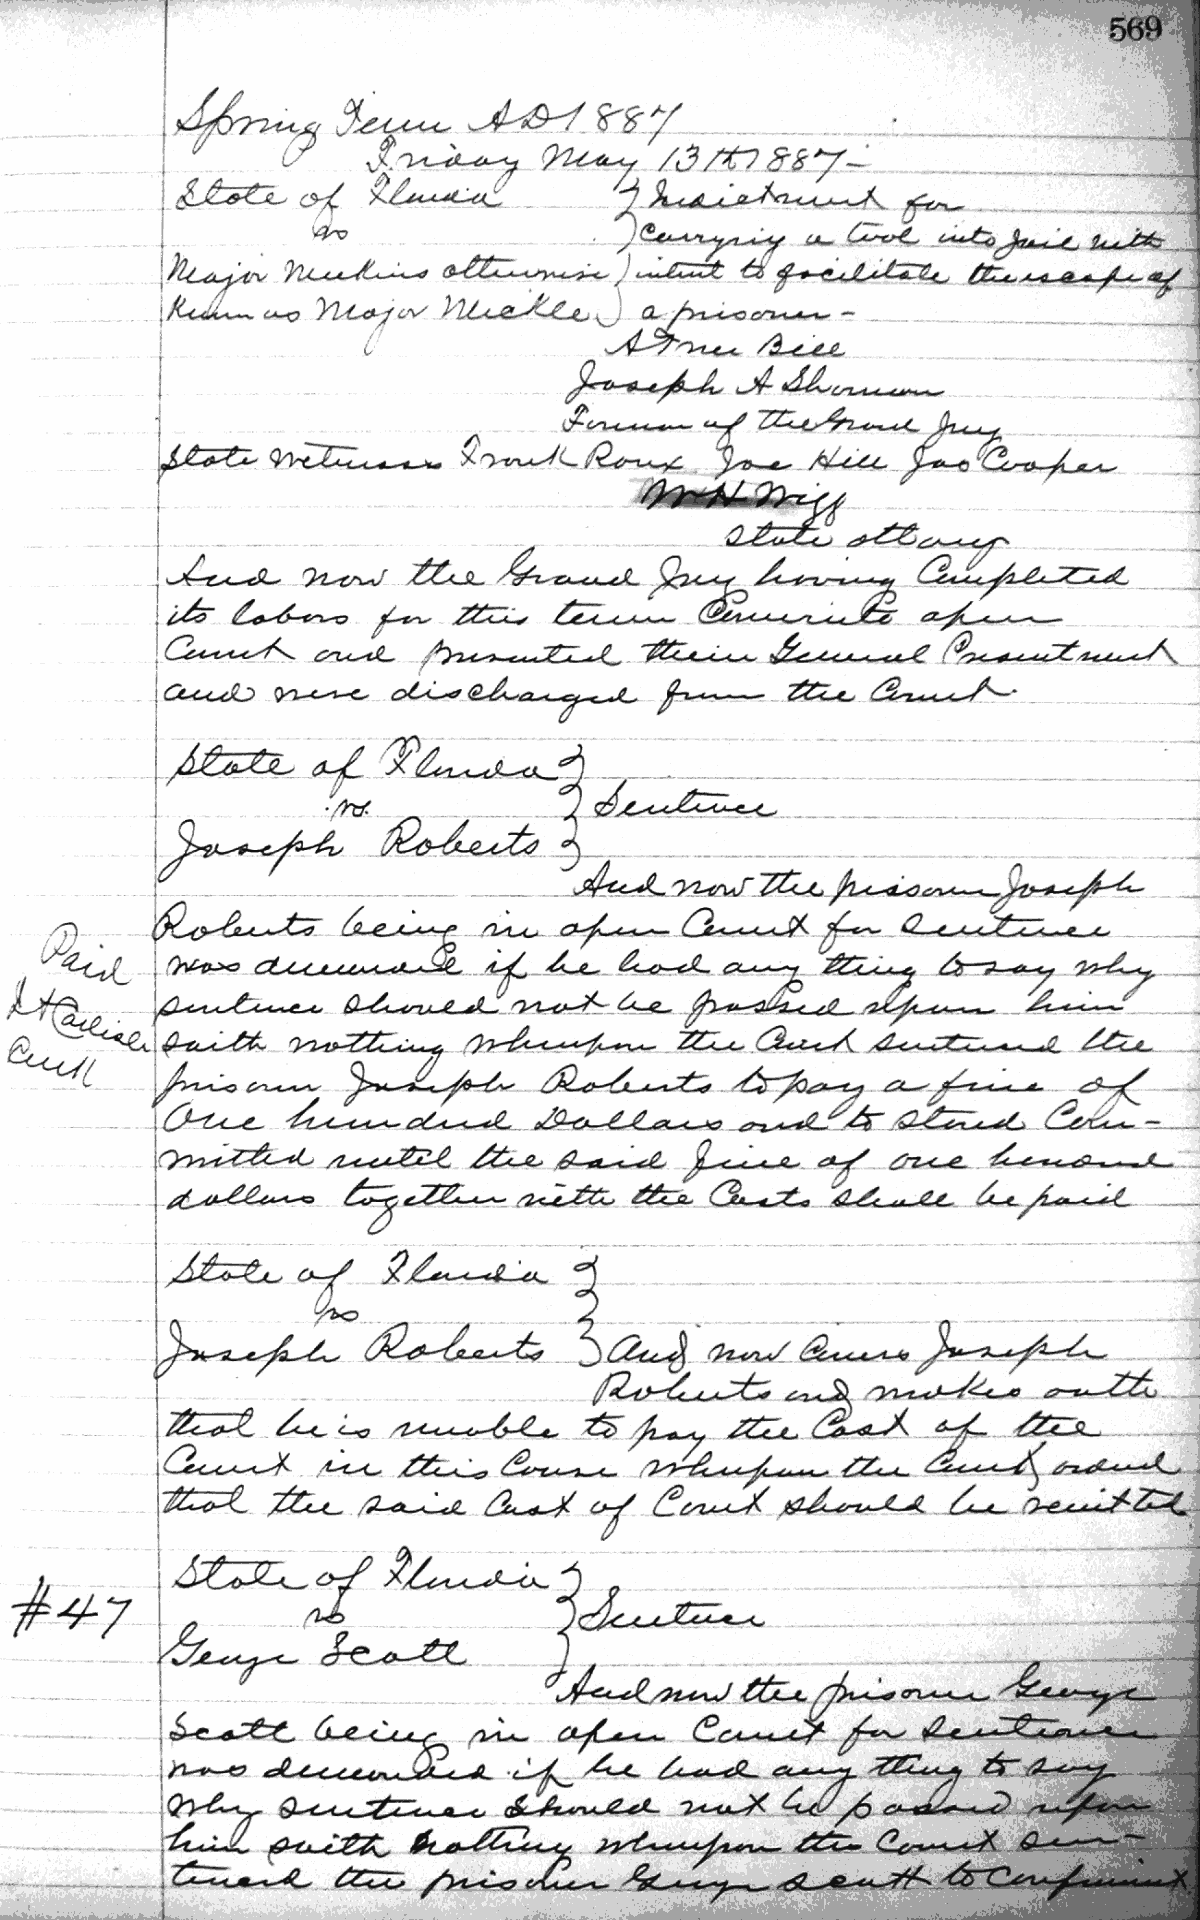 569
Spring Term AD 1887
Friday May 13th 1887-
State of Florida } Indictment for
vs } carrying a tool into Jail with
Major Meekins otherwise } intent to facilitate the escape of
known as Major Mickle } a prisoner-
A True Bill
Joseph A
Foreman of the Grand Jury
State Witnesses Frank Roux Joe Hill Jas Cooper
Wm H Wigg
State attorney
And now the Grand Jury having Completed
its labors for this term Came into open
Court and presented their General Presentment
and were discharged from the Court.
State of Florida }
vs. } Sentence
Joseph Roberts }
And now the prisoner Joseph
Roberts being in open Court for Sentence
was demanded if he had any thing to say why
sentence should not be passed upon him
saith nothing Whereupon the Court sentenced the
prisoner Joseph Roberts to pay a fine of
One hundred Dollars and to stand Com-
mitted until the said fine of one hundred
dollars together with the Costs shall be paid
Paid
Carlisle
Clerk
State of Florida }
vs }
Joseph Roberts } And now comes Joseph
Roberts and makes oath
that he is unable to pay the Cost of the
Court in this Cause Whereupon the Court ordered
that the said Cost of Court should be remitted
#47
State of Florida }
vs } Sentence
George Scott }
And now the prisoner George
Scott being in open Court for Sentence
was demanded if he had any thing to say
Why sentence should not be passed upon
him saith nothing whereupon the Court sen-
tenced the prisoner George Scott to Confinement